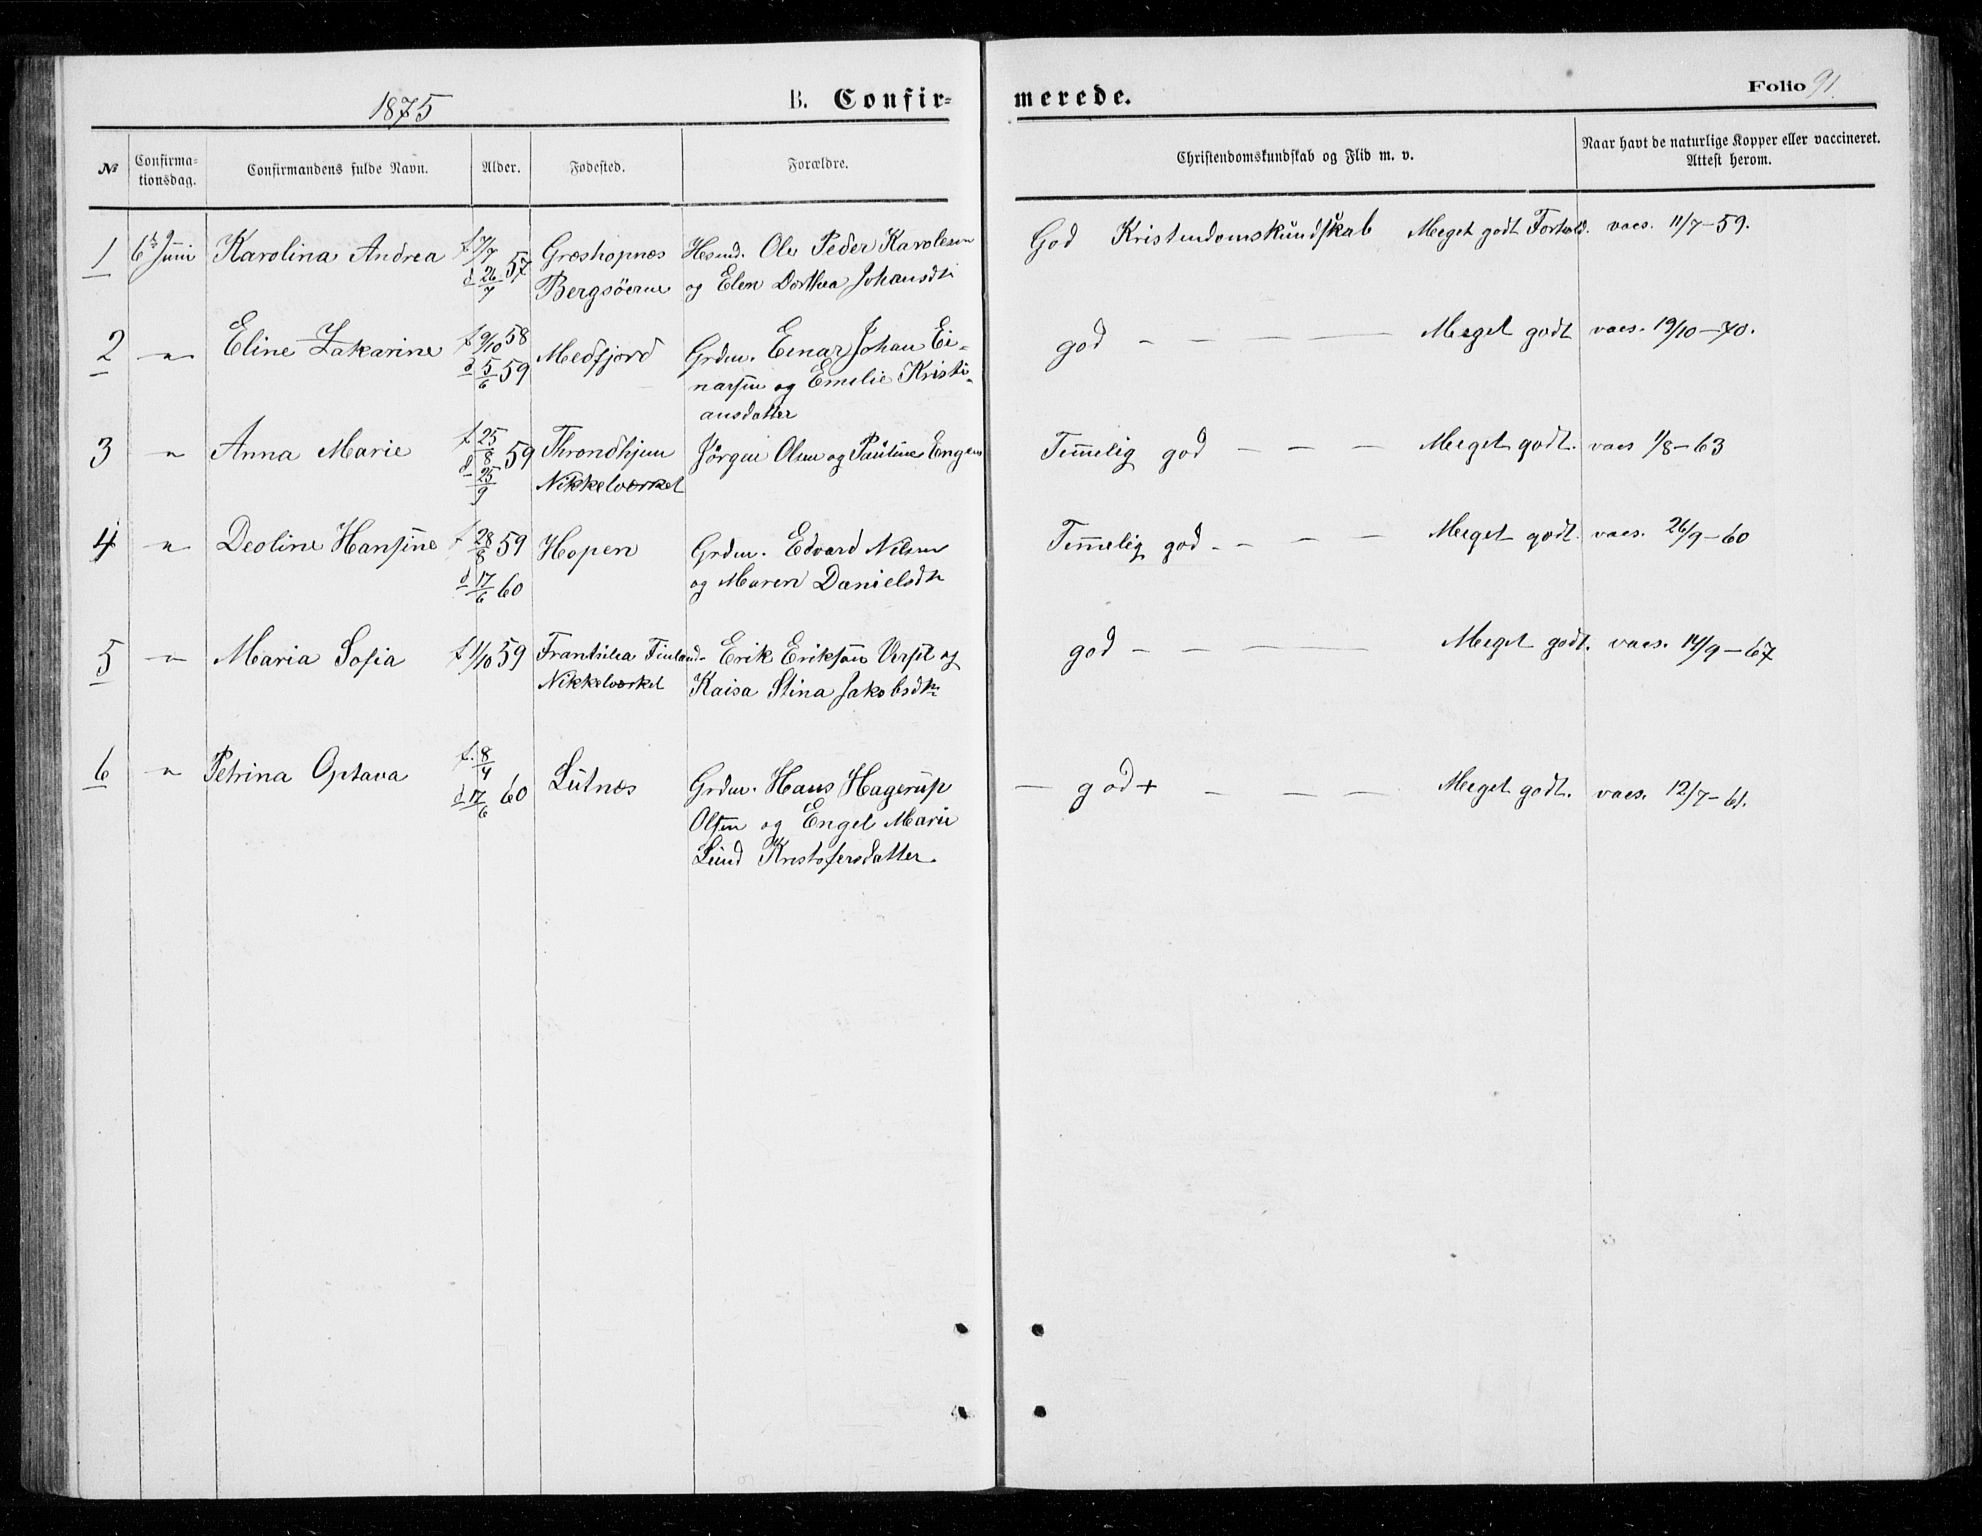 1875
B. Confir-
merede.
Folio 91.
№ Confirma-tionsdag. Confirmandens fulde Navn. Alder. Fødested. Forældre. Christendomskundskab og Flid m. v. Naar havt de naturlige Kopper eller vaccineret. Attest herom.
1 6te Juni Karolina Andrea f 7/7 Græshopnæs Hsmd. Ole Peder Karolesen God Kristendomskundskab Meget godt Forhold. vacc. 11/7-59.
d 26/7 57 Bergsøerne og Elen Dorthea Johansdtr
2 " Eline Zakarine f 9/10 58 Medfjord Grdm. Einar Johan Ei- god - - - - Meget godt vacc. 19/10-70.
d 5/6 59 narsen og Emelie Kristi-
ansdatter
3 " Anna Marie f 25/8 59 Throndhjem Jørgen Olsen og Pauline Engen Temmelig god - - - Meget godt. vacc 1/8-63
d 25/9 Nikkelværket
4 " Deoline Hansine f 28/8 59 Hopen Grdm. Edvard Nilsen Temmelig god - - - - Meget godt. vacc. 26/9-60
d 17/6 60 og Maren Danielsdtr
5 " Maria Sofia f 1/10 59 Frantsila Finland. Erik Eriksen og god - - - - Meget godt. vacc. 14/9-67
Nikkelværket Kaisa Stina Jakobsdtr
6 " Petrina Optava f. 8/4 Lutnæs Grdm. Hans Hagerup - god + - - - Meget godt. vacc. 12/7-61.
d 17/6 60 Olsen og Engel Marie
Lund Kristofersdatter.